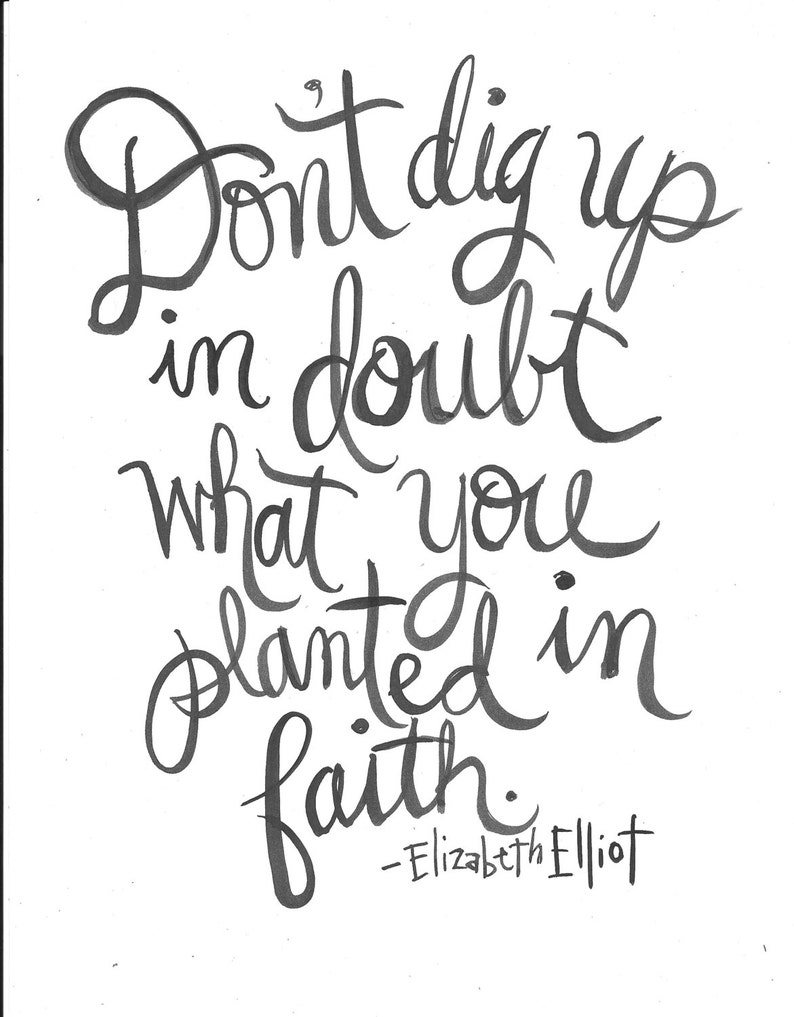 Don't dig up
in doubt
what you
planted in
faith.
-Elizabeth Elliot